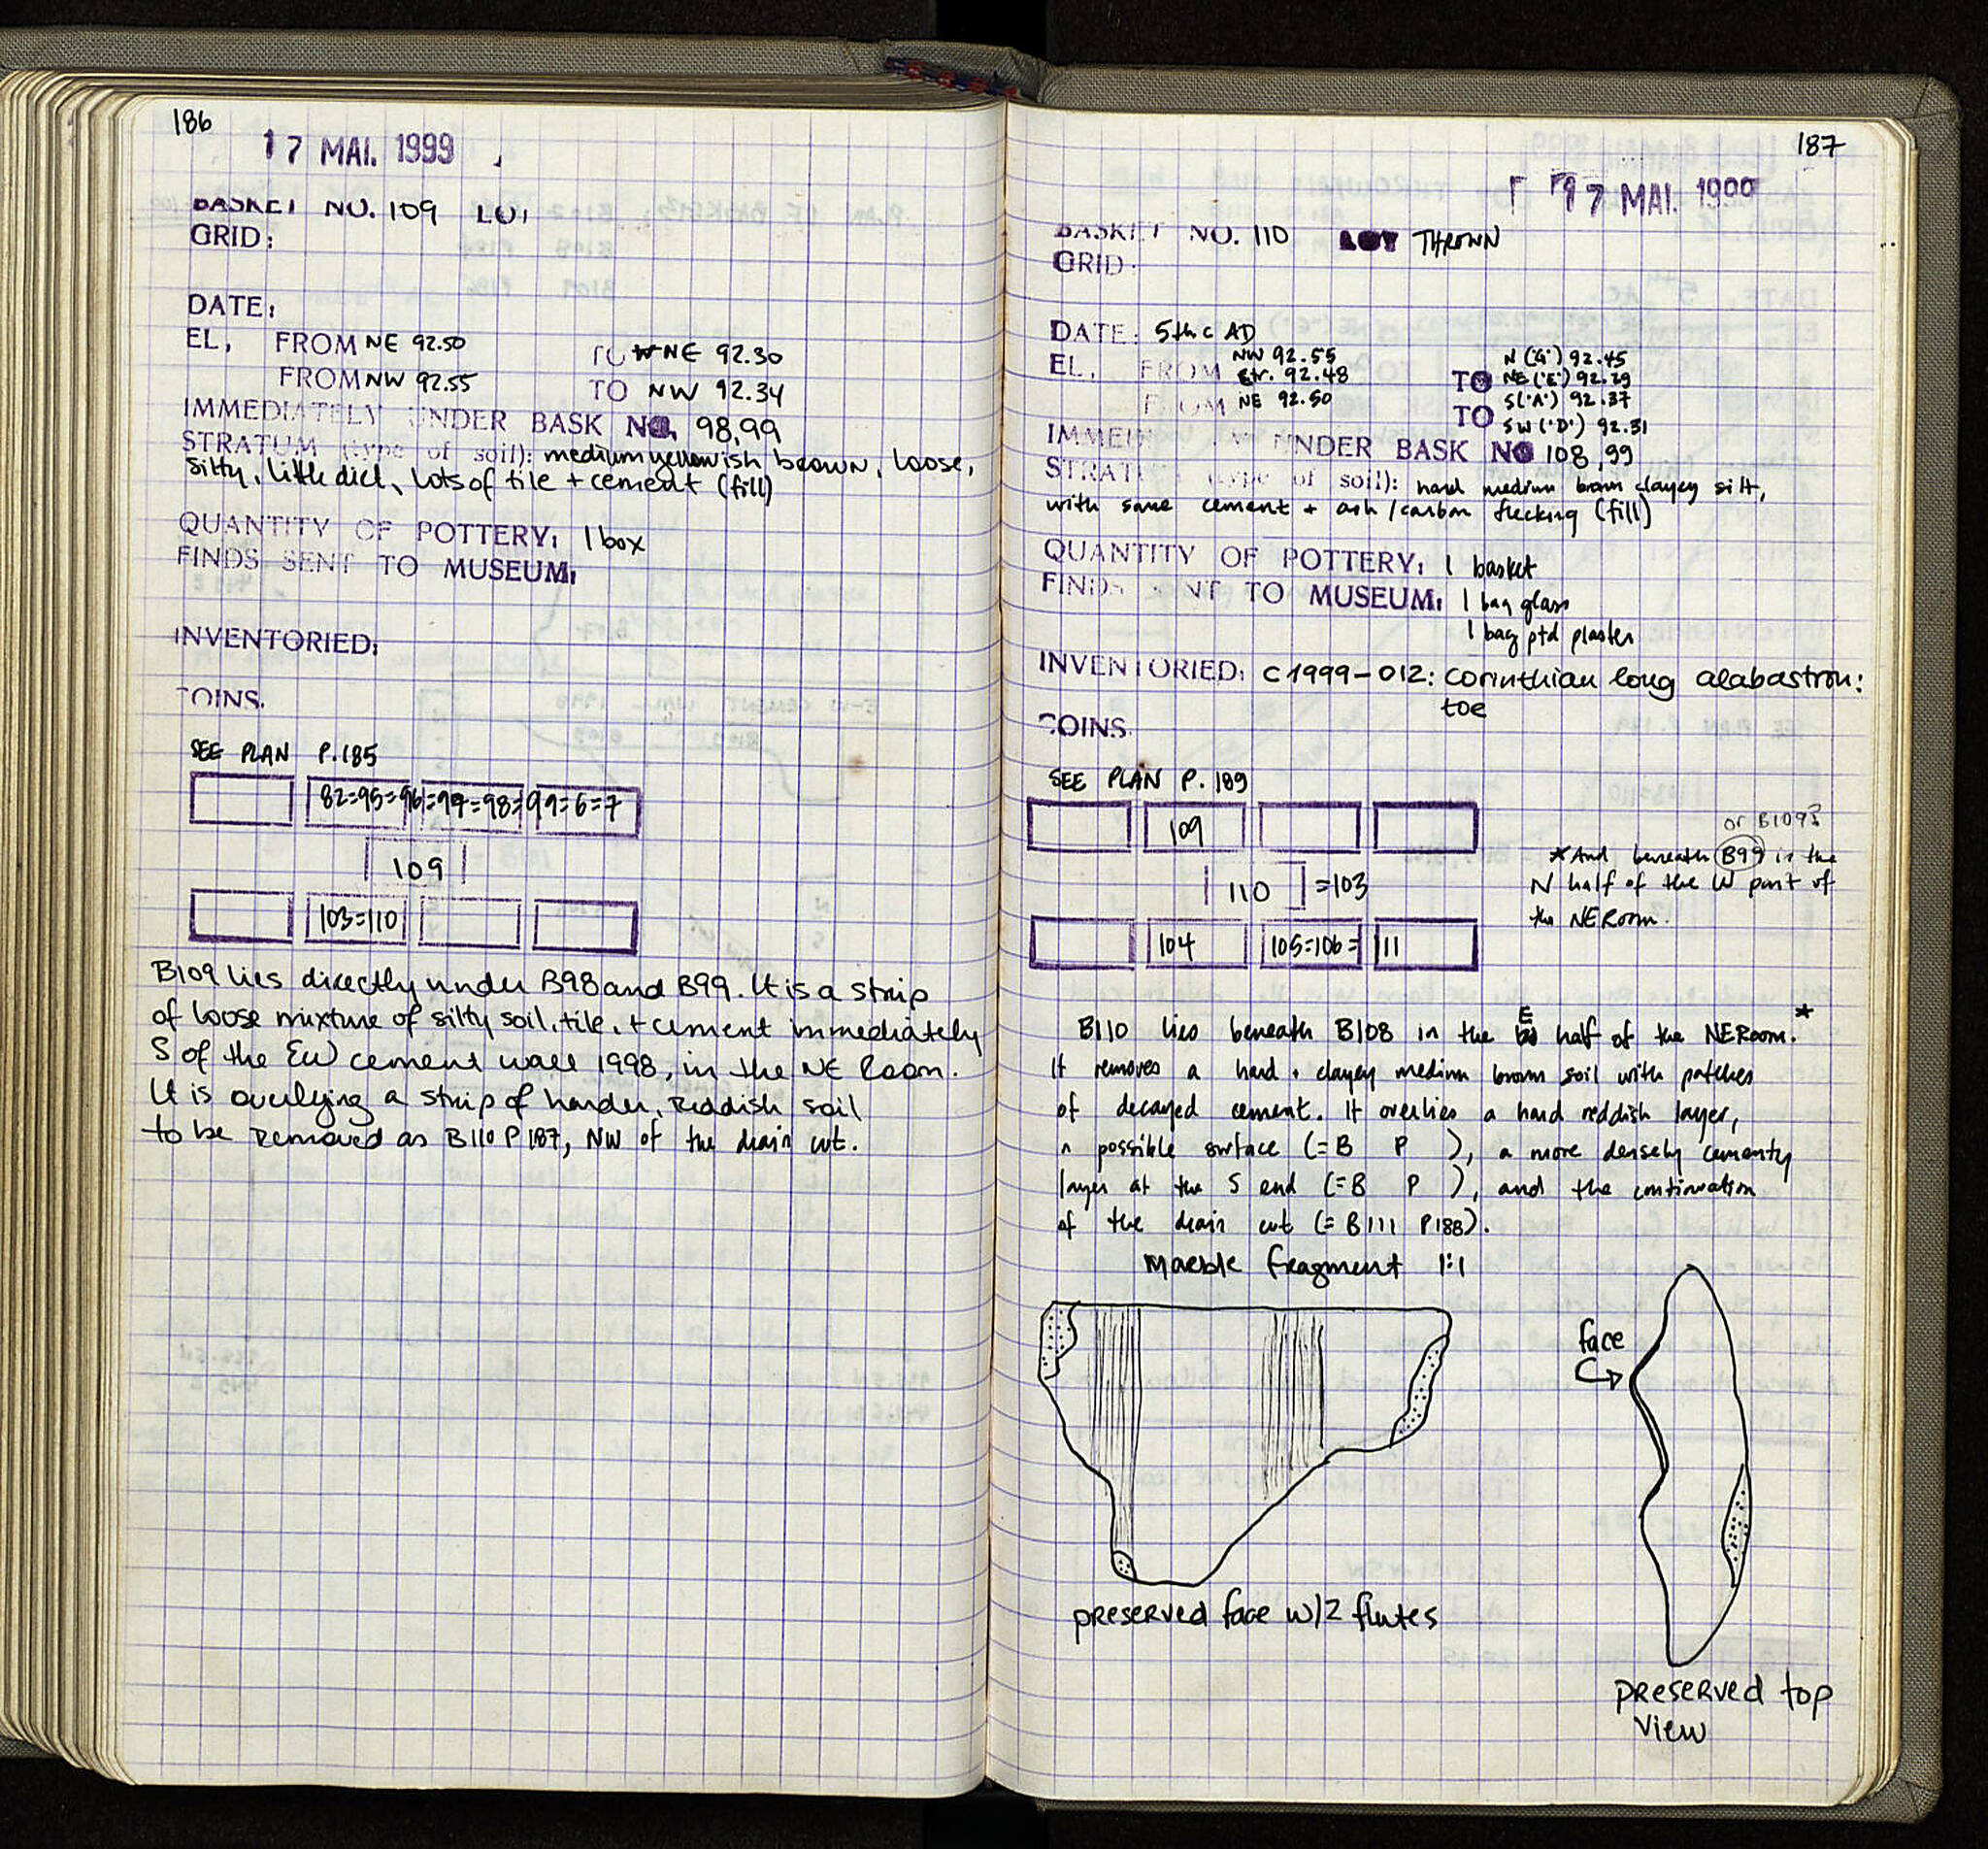 186
17 MAI. 1999
BASKET NO. 109 LOT
GRID:
DATE:
EL, FROM NE 92.50 TO NE 92.30
FROM NW 92.55 TO NW 92.34
IMMEDIATELY UNDER BASK NO. 98,99
STRATUM (type of soil): medium yellowish brown, loose,
silty, little dict, lots of tile + cement (fill)
QUANTITY OF POTTERY: 1 box
FINDS SENT TO MUSEUM:
INVENTORIED:
COINS.
SEE PLAN P.185
82=95=96=97=98=99=6=7
109
103=110
B109 lies directly under B98 and B99. It is a strip
of loose mixture of silty soil, tile, + cement immediately
S of the EW cement wall 1998, in the NE Room.
It is overlying a strip of harder, reddish soil
to be removed as B110 P187, NW of the drain cut.
187
17 MAI. 1999
BASKET NO. 110 LOT THROWN
GRID:
DATE: 5th c AD
EL, FROM NW 92.55 TO N ('G') 92.45
ctr. 92.48 NE ('E') 92.29
FROM NE 92.50 TO S ('A') 92.37
SW ('D') 92.31
IMMEDIATELY UNDER BASK NO 108,99
STRATUM (type of soil): hard medium brown clayey silt,
with some cement + ash/carbon flecking (fill)
QUANTITY OF POTTERY: 1 basket
FINDS SENT TO MUSEUM: 1 bag glass
1 bag ptd plaster
INVENTORIED: C1999-012: Corinthian long alabastron:
toe
COINS.
SEE PLAN P. 189
109
110 =103
104 105=106= 111
or B109?
*And beneath B99 in the
N half of the W part of
the NE Room.
B110 lies beneath B108 in the E half of the NE Room.*
It removes a hard, clayey medium brown soil with patches
of decayed cement. It overlies a hard reddish layer,
a possible surface (=B P ), a more densely cementy
layer at the S end (=B P ), and the continuation
of the drain cut (=B111 P188).
Marble fragment 1:1
face
preserved face w/2 flutes
preserved top
view